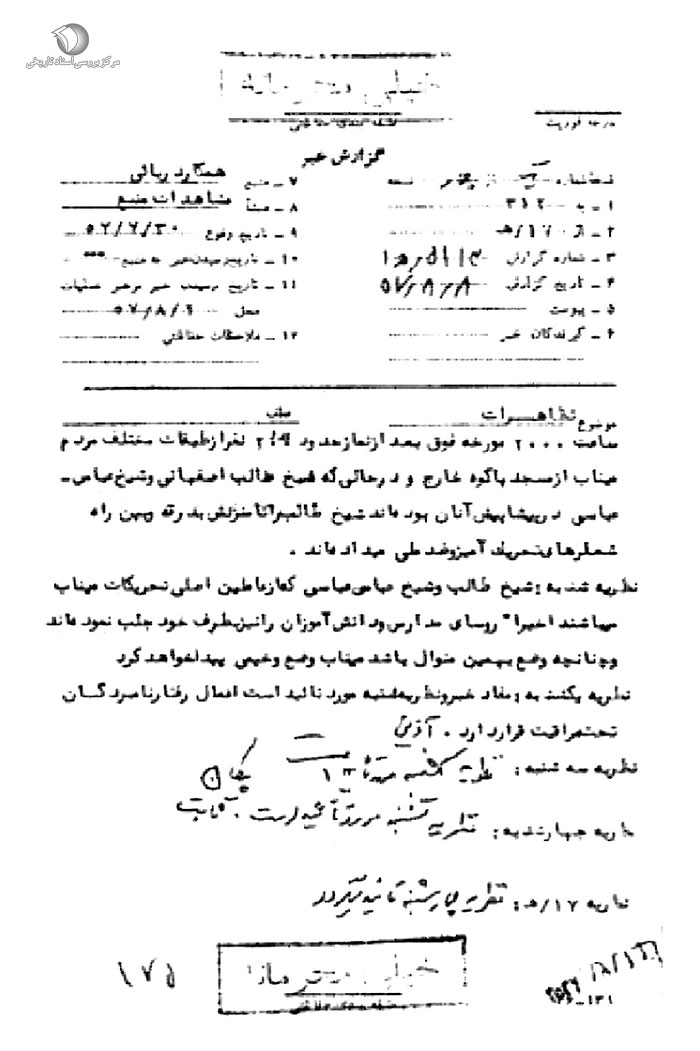 مرکز بررسی اسناد تاریخی
خیلی محرمانه
طبقه بندی حفاظتی
درجه فوریت
گزارش خبر
نسخه شماره از نسخه
۱ ـ به ۳۱۲
۲ ـ از ۱۷/ه
۳ ـ شماره گزارش
۴ ـ تاریخ گزارش ۵۷/۸/۸
۵ ـ پیوست
۶ ـ گیرندگان خبر
۷ ـ منبع همکار ربانی
۸ ـ منشأ مشاهدات منبع
۹ ـ تاریخ وقوع ۵۷/۷/۳۰
۱۰ ـ تاریخ رسیدن خبر به منبع
۱۱ ـ تاریخ رسیدن خبر برهبر عملیات
محل ۵۷/۸/۶
۱۲ ـ ملاحظات حفاظتی
موضوع تظاهرات
ساعت ۲۰۰۰ مورخه فوق بعد از نماز حدود نفر از طبقات مختلف مردم
میناب از مسجد پاکوه خارج و در حالی که شیخ طالب اصفهانی و شیخ عباس ـ
عباسی در پیشاپیش آنان بوده‌اند شیخ طالب را تا منزلش بدرقه و بین راه
شعارهای تحریک آمیز و ضد ملی میداده‌اند .
نظریه شنبه : شیخ طالب و شیخ عباس عباسی که از عاملین اصلی تحریکات میناب
میباشند اخیرا" روسای مدارس و دانش‌آموزان را نیز بطرف خود جلب نموده‌اند
و چنانچه وضع بهمین منوال باشد میناب وضع وخیمی پیدا خواهد کرد
نظریه یکشنبه : مفاد خبر و نظریه شنبه مورد تائید است اعمال رفتار نامبردگان
تحت مراقبت قرار دارد .
نظریه سه شنبه : نظریه
نظریه چهارشنبه : نظریه سه‌شنبه مورد تأئید است .
نظریه ۱۷/ه : نظریه چهارشنبه تائید میگردد
خیلی محرمانه
طبقه بندی حفاظتی
۱۷۵